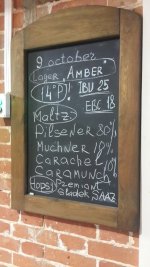 9 october
Lager "AMBER"
14°P! IBU 25
EBC 18
Maltz:
PILSENER 30%
MUCHNER 18%
CARACHEL
CARAMUNCH 10%
Hops: Premiant
Sladek SAAZ